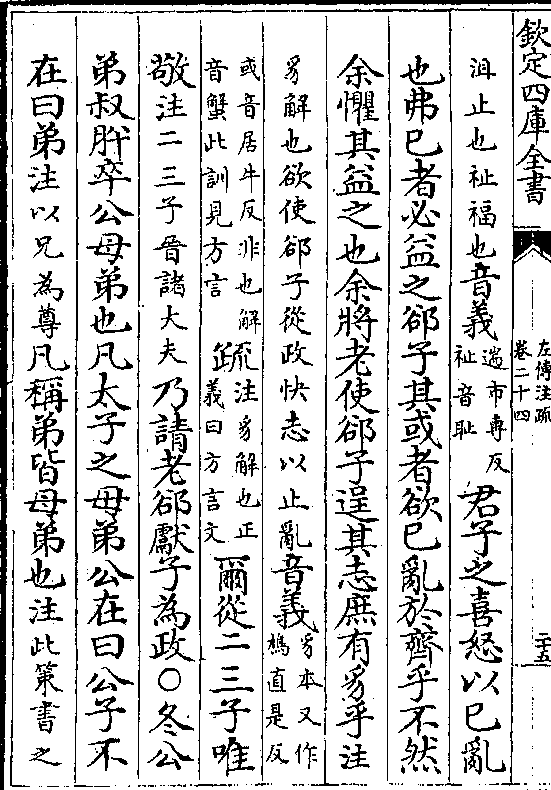 欽定四庫全書
左傳注疏
卷二十四
二十五
沮止也祉福也音義
遄市專反
祉音恥
君子之喜怒以已亂
也弗已者必益之郤子其或者欲已亂於齊乎不然
余懼其益之也余將老使郤子逞其志庶有豸乎注
豸解也欲使郤子從政快志以止亂音義
豸本又作
鳩直是反
或音居牛反非也解
音蟹此訓見方言
疏
注豸解也正
義曰方言文
爾從二三子唯
敬注二三子晉諸大夫乃請老郤獻子為政○冬公
弟叔肸卒公母弟也凡太子之母弟公在曰公子不
在曰弟注以兄為尊凡稱弟皆母弟也注此策書之